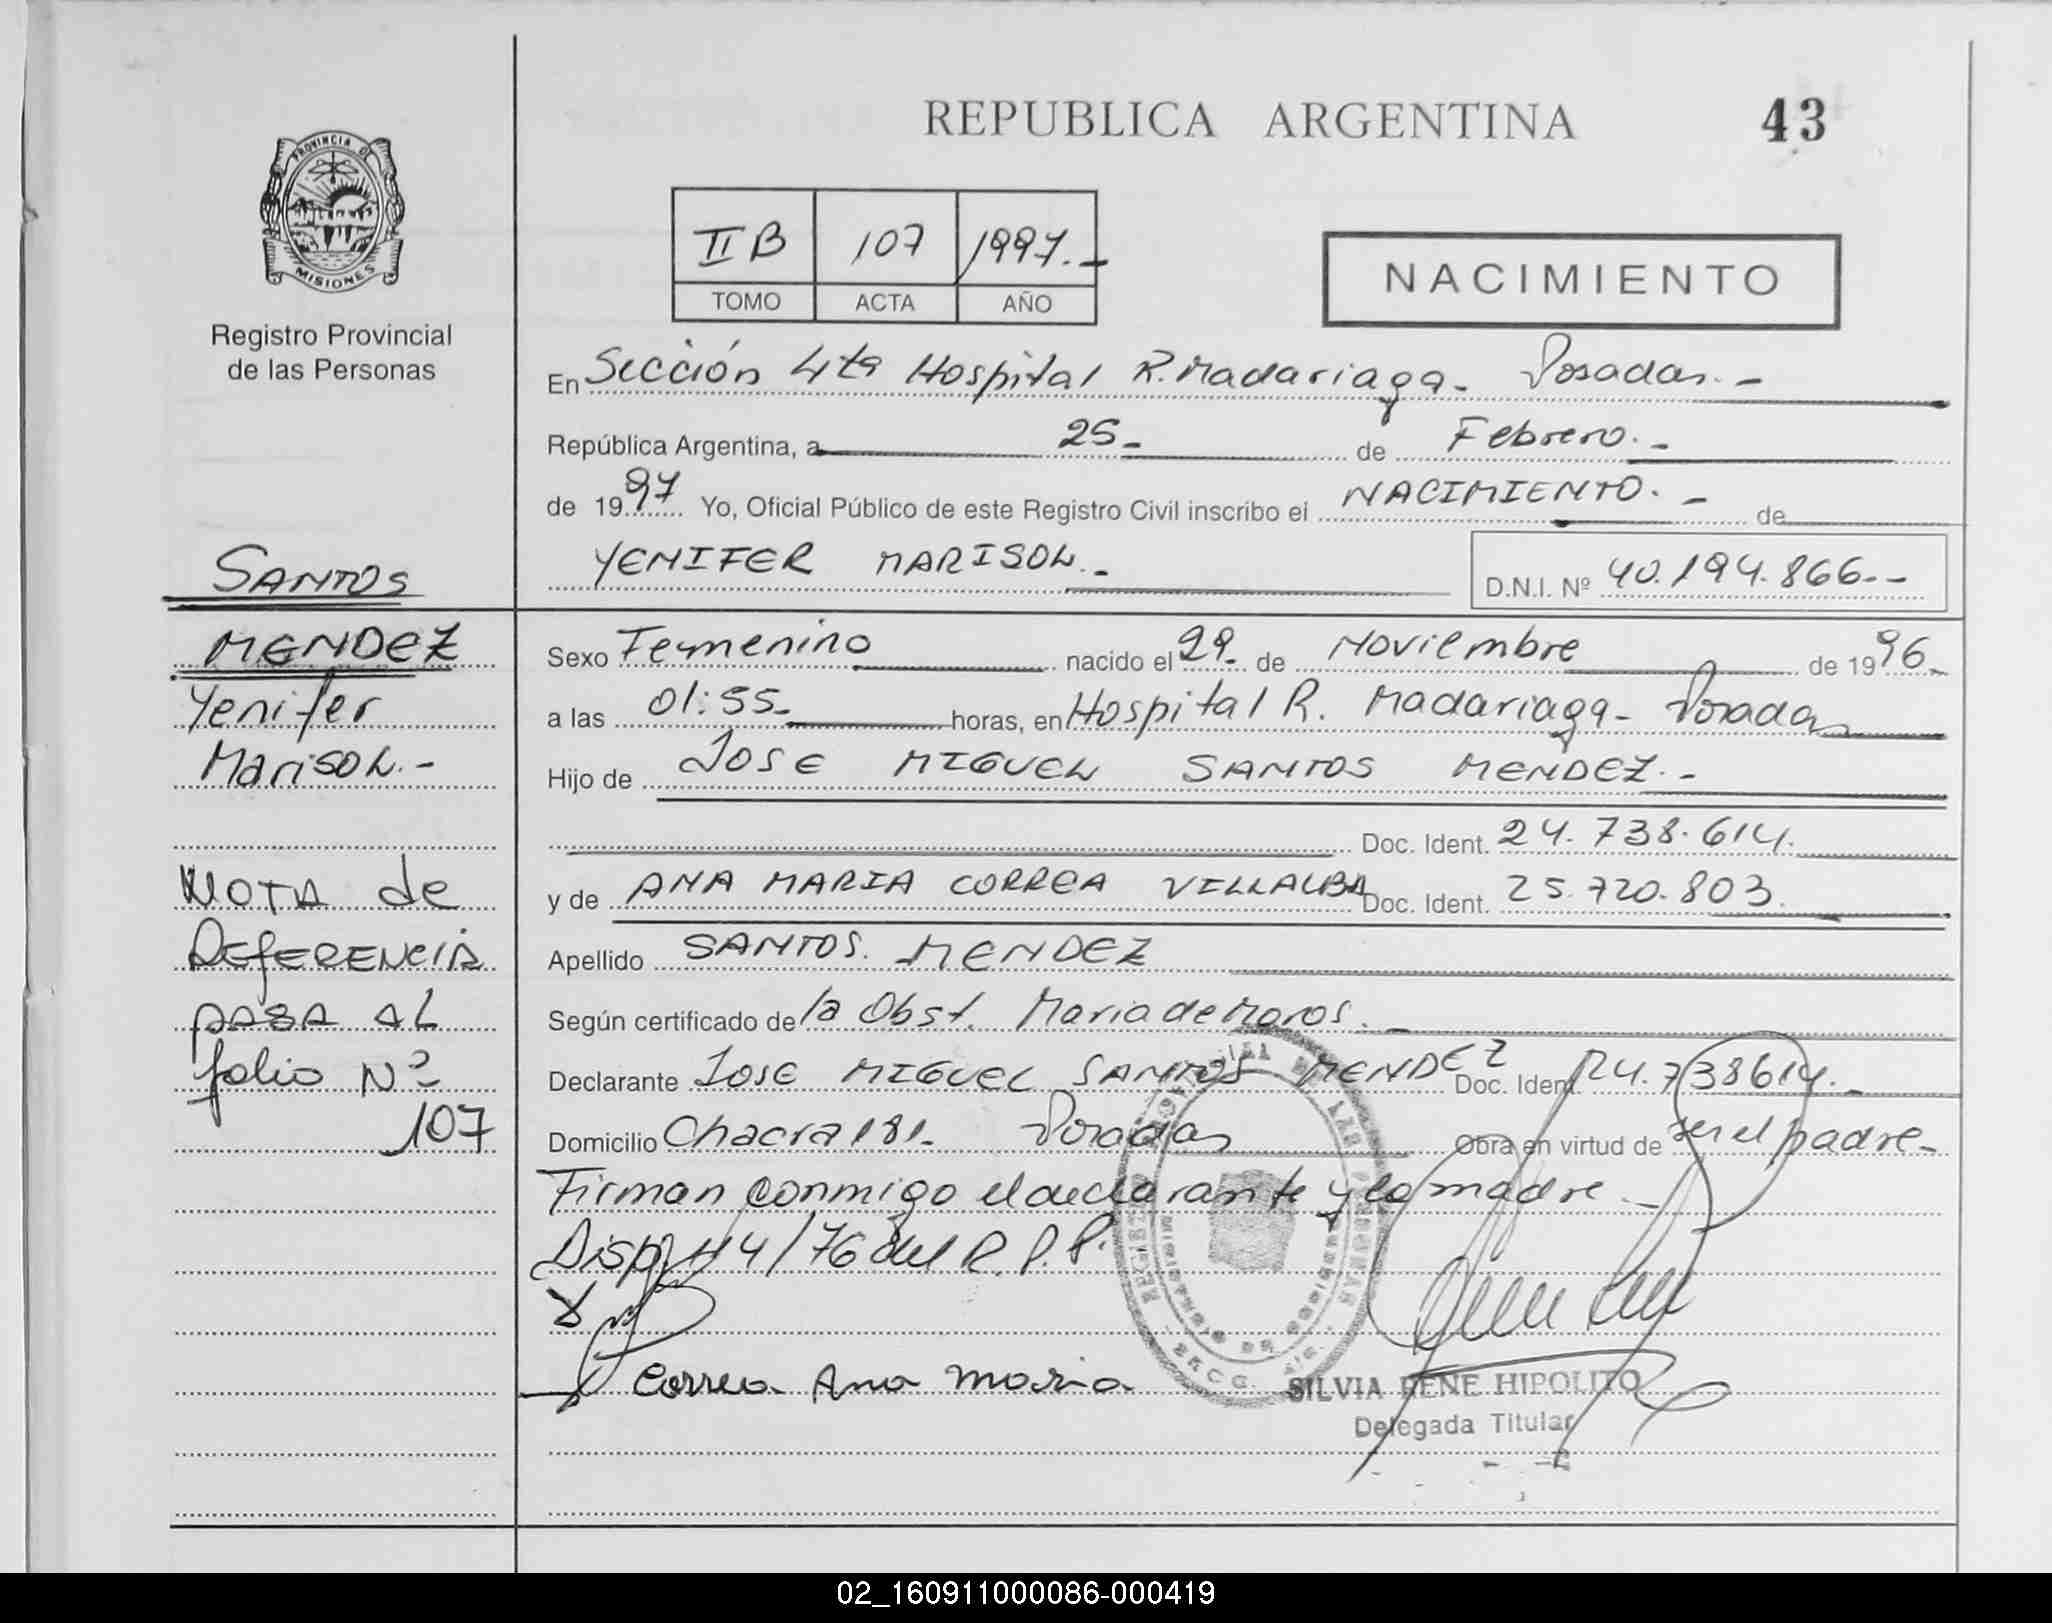 REPUBLICA ARGENTINA
43
PROVINCIA DE
MISIONES
Registro Provincial
de las Personas
II B 107 1997.-
TOMO ACTA AÑO
NACIMIENTO
En Sección 4ta Hospital R. Madariaga- Posadas.-
República Argentina, a 25- de Febrero.-
de 1997 Yo, Oficial Público de este Registro Civil inscribo el NACIMIENTO.- de
YENIFER MARISOL.-
D.N.I. Nº 40.194.866.--
SANTOS
MENDEZ
Yenifer
Marisol.-
NOTA de
REFERENCIA
PASA AL
folio Nº
107
Sexo Femenino nacido el 29. de Noviembre de 1996.-
a las 01:55.- horas, en Hospital R. Madariaga- Posadas
Hijo de JOSE MIGUEL SANTOS MENDEZ.-
Doc. Ident. 24.738.614.
y de ANA MARIA CORREA VILLALBA Doc. Ident. 25.720.803.
Apellido SANTOS. MENDEZ
Según certificado de la Obst. Maria de Moros.-
Declarante JOSE MIGUEL SANTOS MENDEZ Doc. Ident. 24.738614.-
Domicilio Chacra 181- Posadas Obra en virtud de ser el padre-
Firman conmigo el declarante y la madre.-
Disp. 44/76 del R.P.P.
Correa Ana Maria
SILVIA RENE HIPOLITO
Delegada Titular
02_160911000086-000419